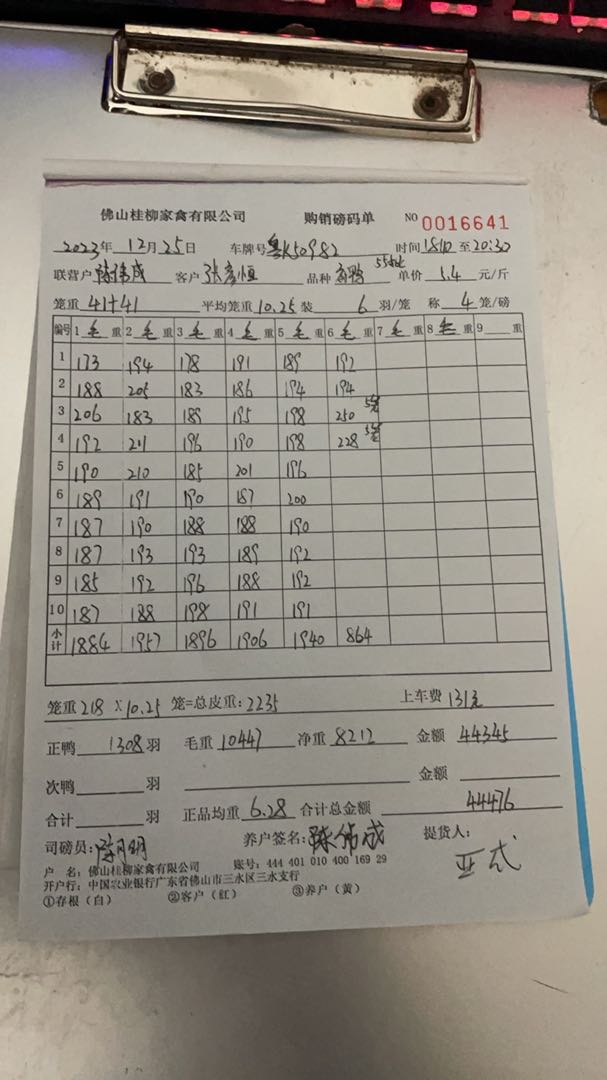 佛山桂柳家禽有限公司 购销磅码单 NO 0016641
2023年 12月 25日 车牌号 粤K50982 时间 1810 至 20:30
联营户 陈伟成 客户 张彦恒 品种 鸭 单价 5.4 元/斤
笼重 41+41 平均笼重 10.25 装 6 羽/笼 称 4 笼/磅
编号 1 毛 重 2 毛 重 3 毛 重 4 毛 重 5 毛 重 6 毛 重 7 毛 重 8 毛 重 9 重
1 173 194 178 191 189 192
2 188 205 183 186 194 194
3 206 183 189 195 198 250 5笼
4 192 201 196 190 198 228 5笼
5 190 210 185 201 196
6 189 191 190 187 200
7 187 190 188 188 190
8 187 193 193 189 192
9 185 192 196 188 192
10 187 188 198 191 191
小计 1884 1957 1896 1906 1940 864
笼重 218 X 10.25 笼=总皮重: 2235 上车费 131元
正鸭 1308 羽 毛重 10447 净重 8212 金额 44345
次鸭 羽 金额
合计 羽 正品均重 6.28 合计总金额 44476
司磅员: 陈 明 养户签名: 陈伟成 提货人:
户 名: 佛山桂柳家禽有限公司 账号: 444 401 010 400 169 29
开户行: 中国农业银行广东省佛山市三水区三水支行
①存根(白) ②客户(红) ③养户(黄)